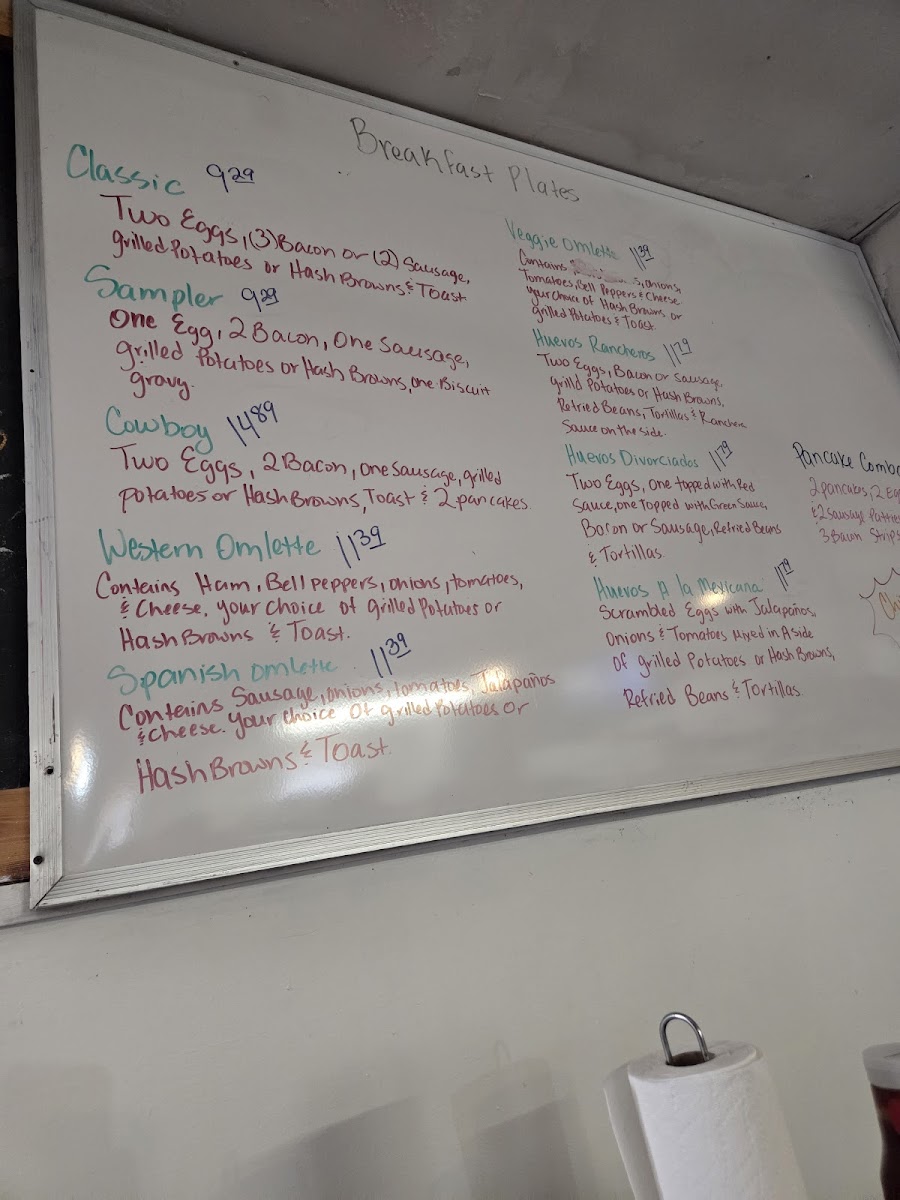 Breakfast Plates
Classic 9 29
Two Eggs, (3) Bacon or (2) Sausage,
grilled Potatoes or Hash Browns & Toast
Sampler 9 29
One Egg, 2 Bacon, One Sausage,
grilled Potatoes or Hash Browns, one Biscuit
gravy.
Cowboy 14 89
Two Eggs, 2 Bacon, one Sausage, grilled
potatoes or Hash Browns, Toast & 2 pancakes.
Western Omlette 11 39
Contains Ham, Bell peppers, onions, tomatoes,
& Cheese. your choice of grilled Potatoes or
Hash Browns & Toast.
Spanish omlette 11 39
Contains Sausage, onions, tomatoes, Jalapaños
& cheese. your choice of grilled Potatoes or
Hash Browns & Toast.
Veggie omlette 11 39
Contains s, onions,
Tomatoes, Bell Peppers & Cheese.
your choice of Hash Browns or
grilled Potatoes & Toast.
Huevos Rancheros 11 79
Two Eggs, Bacon or Sausage,
grilld Potatoes or Hash Browns,
Refried Beans, Tortillas & Ranchera
Sauce on the side.
Huevos Divorciados 11 79
Two Eggs, one topped with Red
Sauce, one Topped with Green Sauce,
Bacon or Sausage, Refried Beans
& Tortillas
Huevos A la Mexicana 11 79
Scrambled Eggs with Jalapaños,
Onions & Tomatoes Mixed in A side
Of grilled Potatoes or Hash Browns,
Refried Beans & Tortillas
Pancake Combo
2 pancakes, 2 Eg
& 2 Sausage Patties
3 Bacon Strips